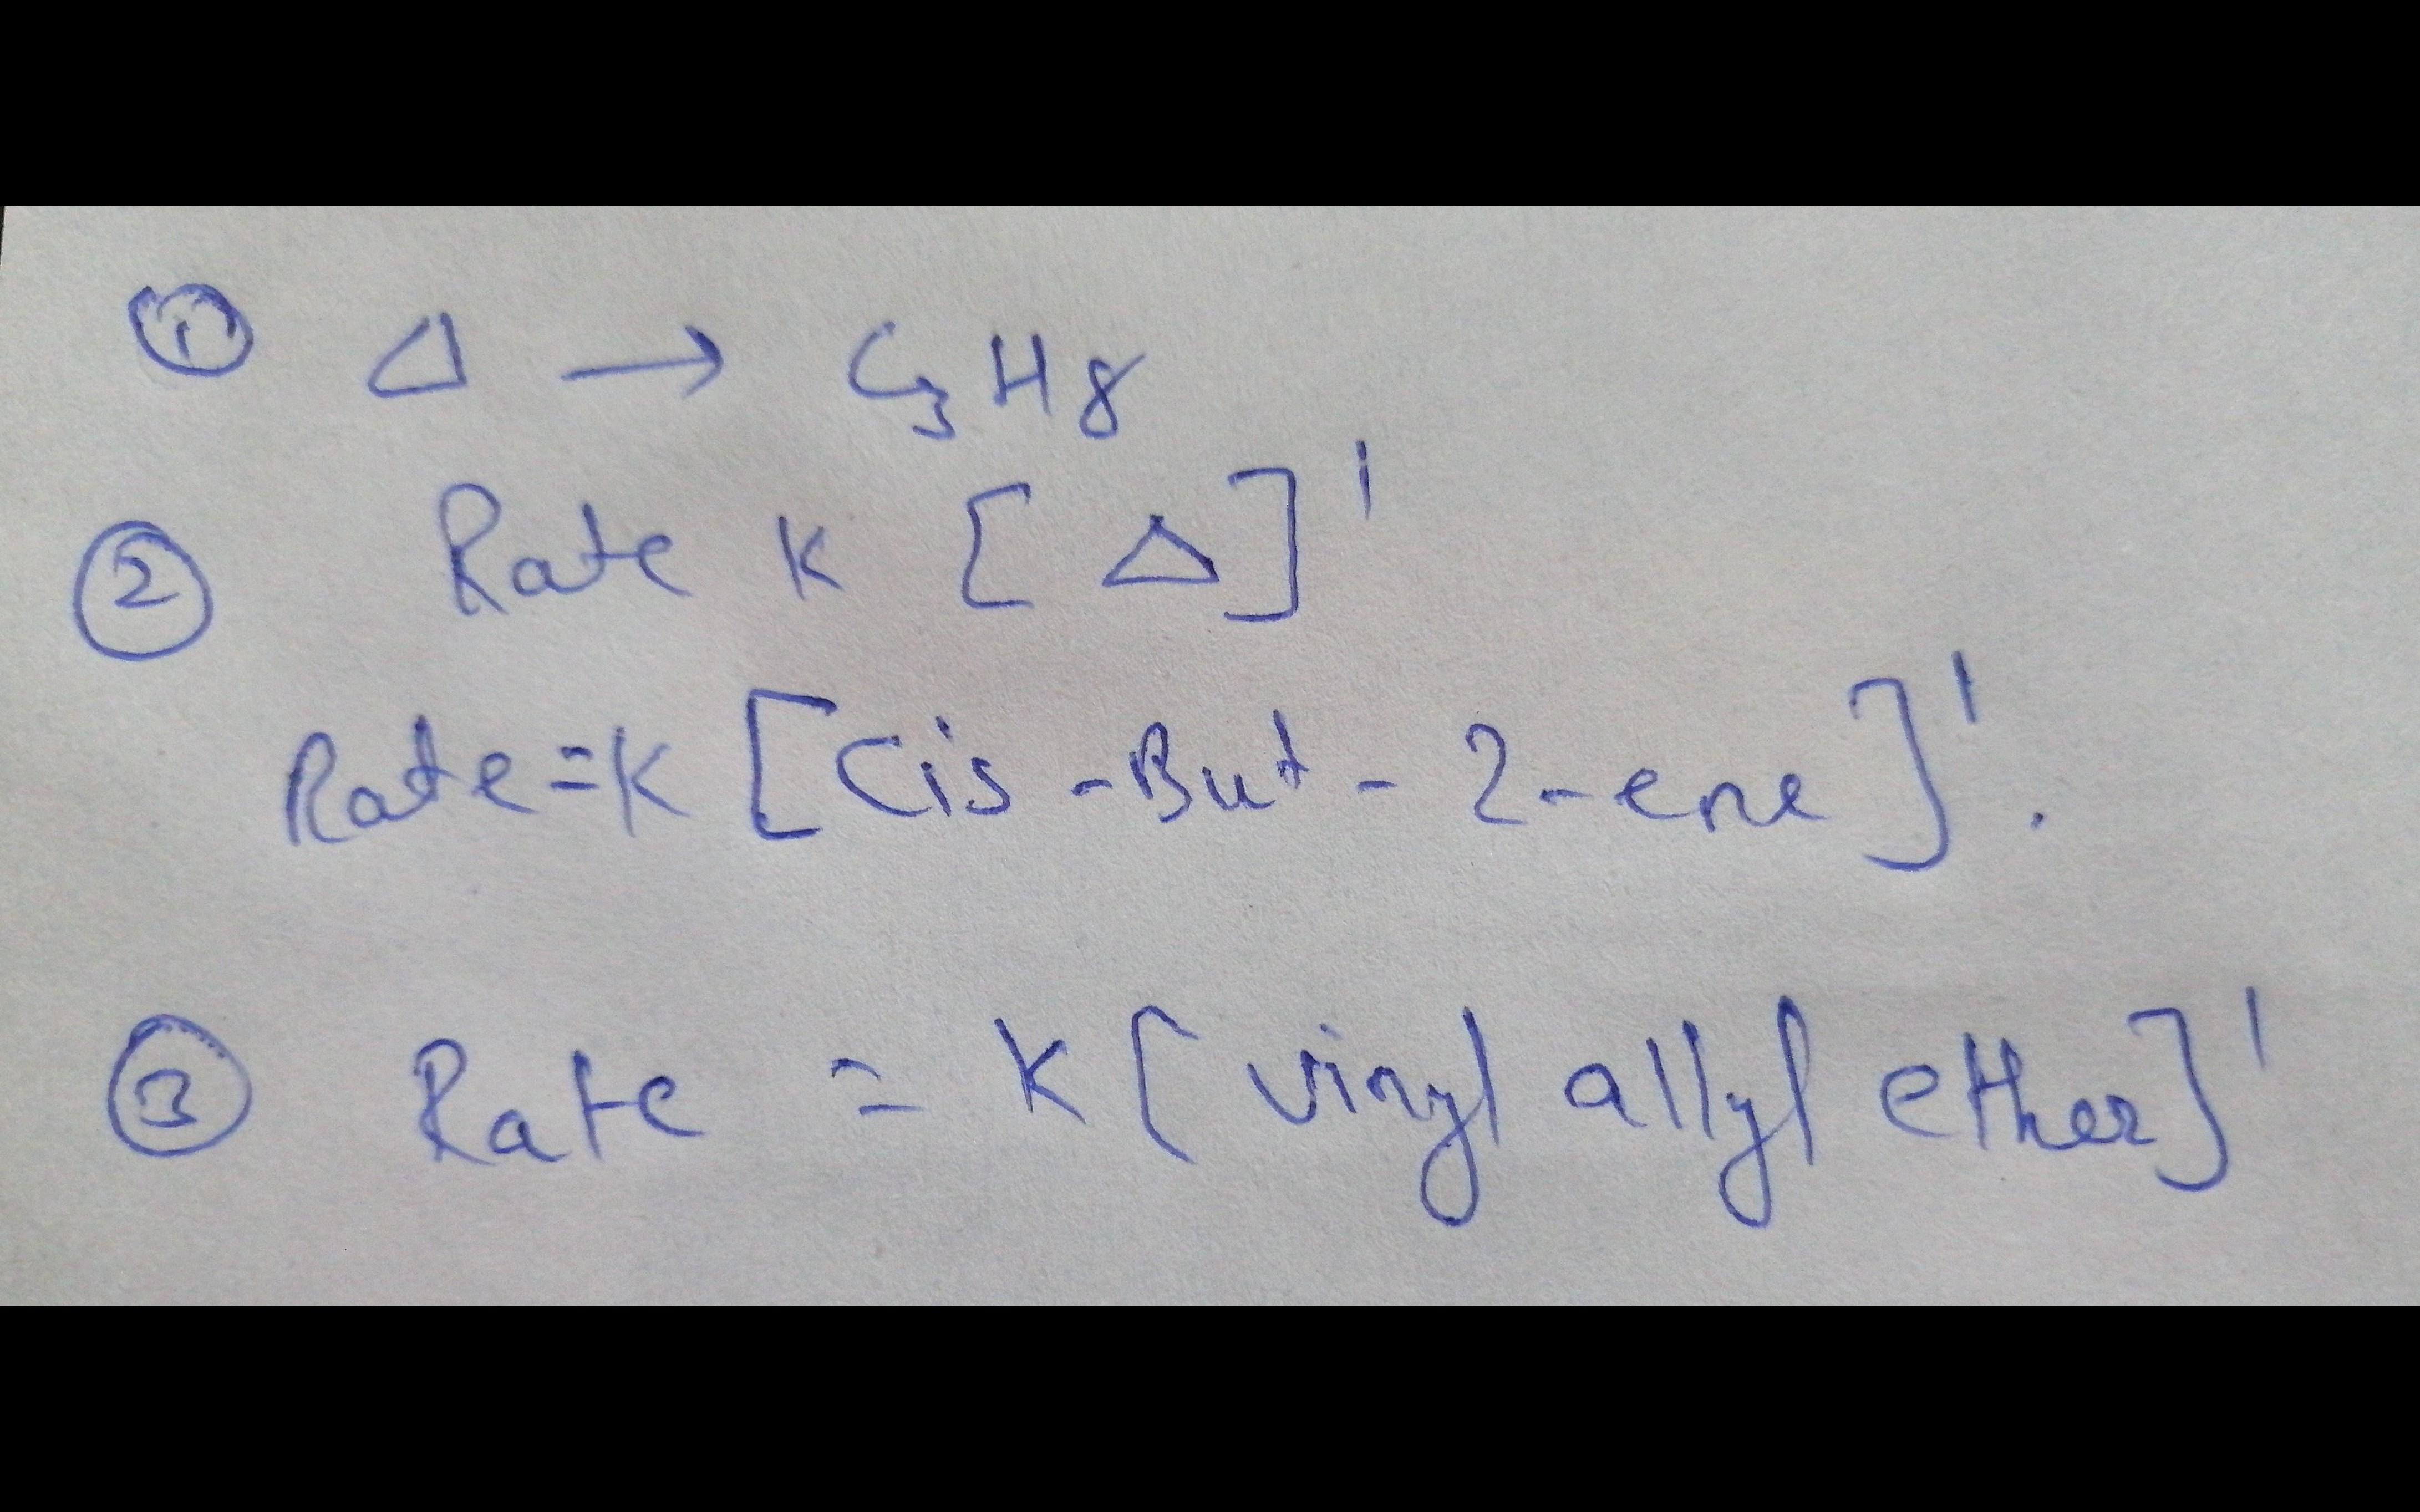 ① △ → C₃H₈
② Rate K [△]¹
Rate=K [Cis-But-2-ene]¹.
③ Rate = K [vinyl allyl ether]¹